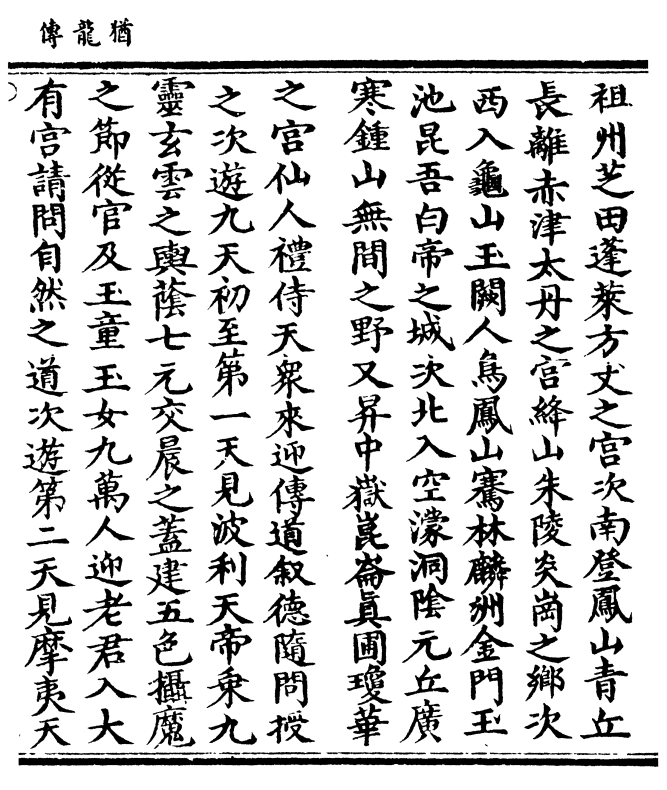 猶龍傳
祖州芝田蓬萊方丈之宮次南登鳳山青丘
長離赤津太丹之宮絳山朱陵炎崗之鄉次
西入龜山玉闕人鳥鳳山騫林麟洲金門玉
池昆吾白帝之城次北入空濛洞陰元丘廣
寒鍾山無間之野又昇中嶽崑崙眞圃瓊華
之宮仙人禮侍天衆來迎傳道叙德隨問授
之次遊九天初至第一天見波利天帝乗九
靈玄雲之輿蔭七元交晨之蓋建五色攝魔
之節從官及玉童玉女九萬人迎老君入大
有宮請問自然之道次遊第二天見摩夷天